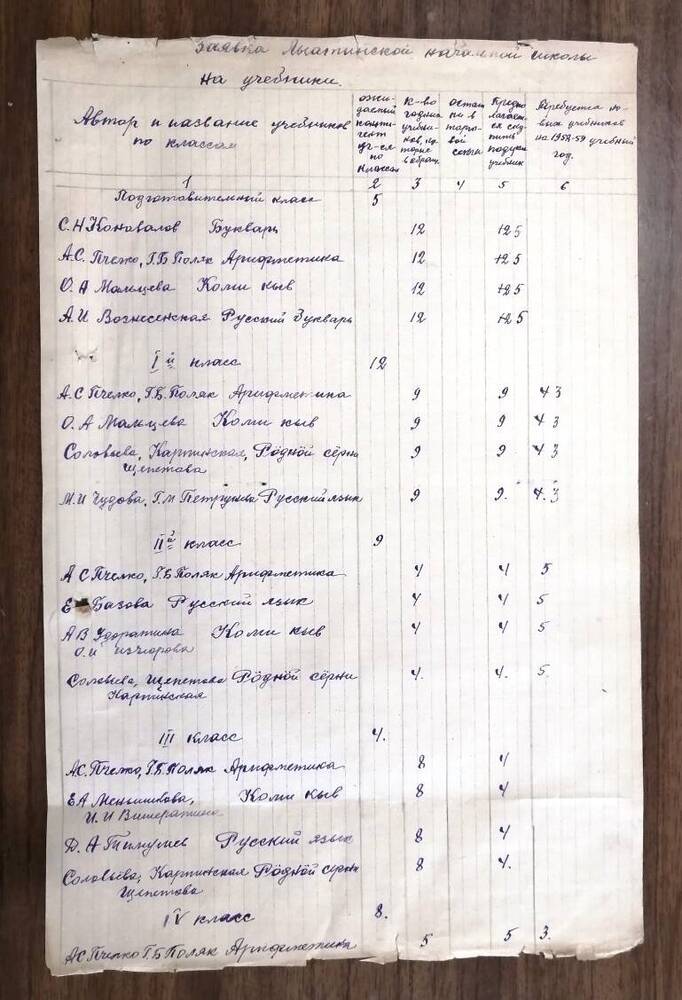 Заявка Лыатинской начальной школы
на учебники.
Автор и название учебников по классам | ожидаемый контингент уч-ся по классам | к-во годных учебников, которые в обращ. | остатки в торговой сети | Предполагается подуч. учебник | Требуется новых учебников на 1958-59 учебный год.
1 2 3 4 5 6
Подготовительный класс 5
С.Н Коновалов Букварь 12 12 5
А.С. Пчелко, Г.Б Поляк Арифметика 12 12 5
О. А Мальцева Коми кыв 12 12 5
А. И Вознесенская Русский букварь 12 12 5
I й класс 12
А.С Пчелко, Г.Б. Поляк Арифметика 9 9 4 3
О. А Мальцева Коми кыв 9 9 4 3
Соловьева, Карпинская, Рӧднӧй сёрни 9 9 4 3
Щепетова
М.И Чудова, Г.М Петрунева Русский язык 9 9. 4. 3
II й класс 9
А С Пчелко, Г.Б Поляк Арифметика 4 4 5
Базова Русский язык 4 4 5
А В Удоратина Коми кыв 4 4 5
О. И
Соловьева, Щепетова Рӧднӧй сёрни 4. 4. 5.
Карпинская
III класс 4.
А.С. Пчелко, Г.Б. Поляк Арифметика 8 4
Е.А Меньшикова, Коми кыв 8 4
И. И
Д. А Русский язык 8 4
Соловьева, Карпинская Рӧднӧй сёрни 8 4.
Щепетова
IV класс 8.
А С Пчелко Г.Б Поляк Арифметика 5 5 3.